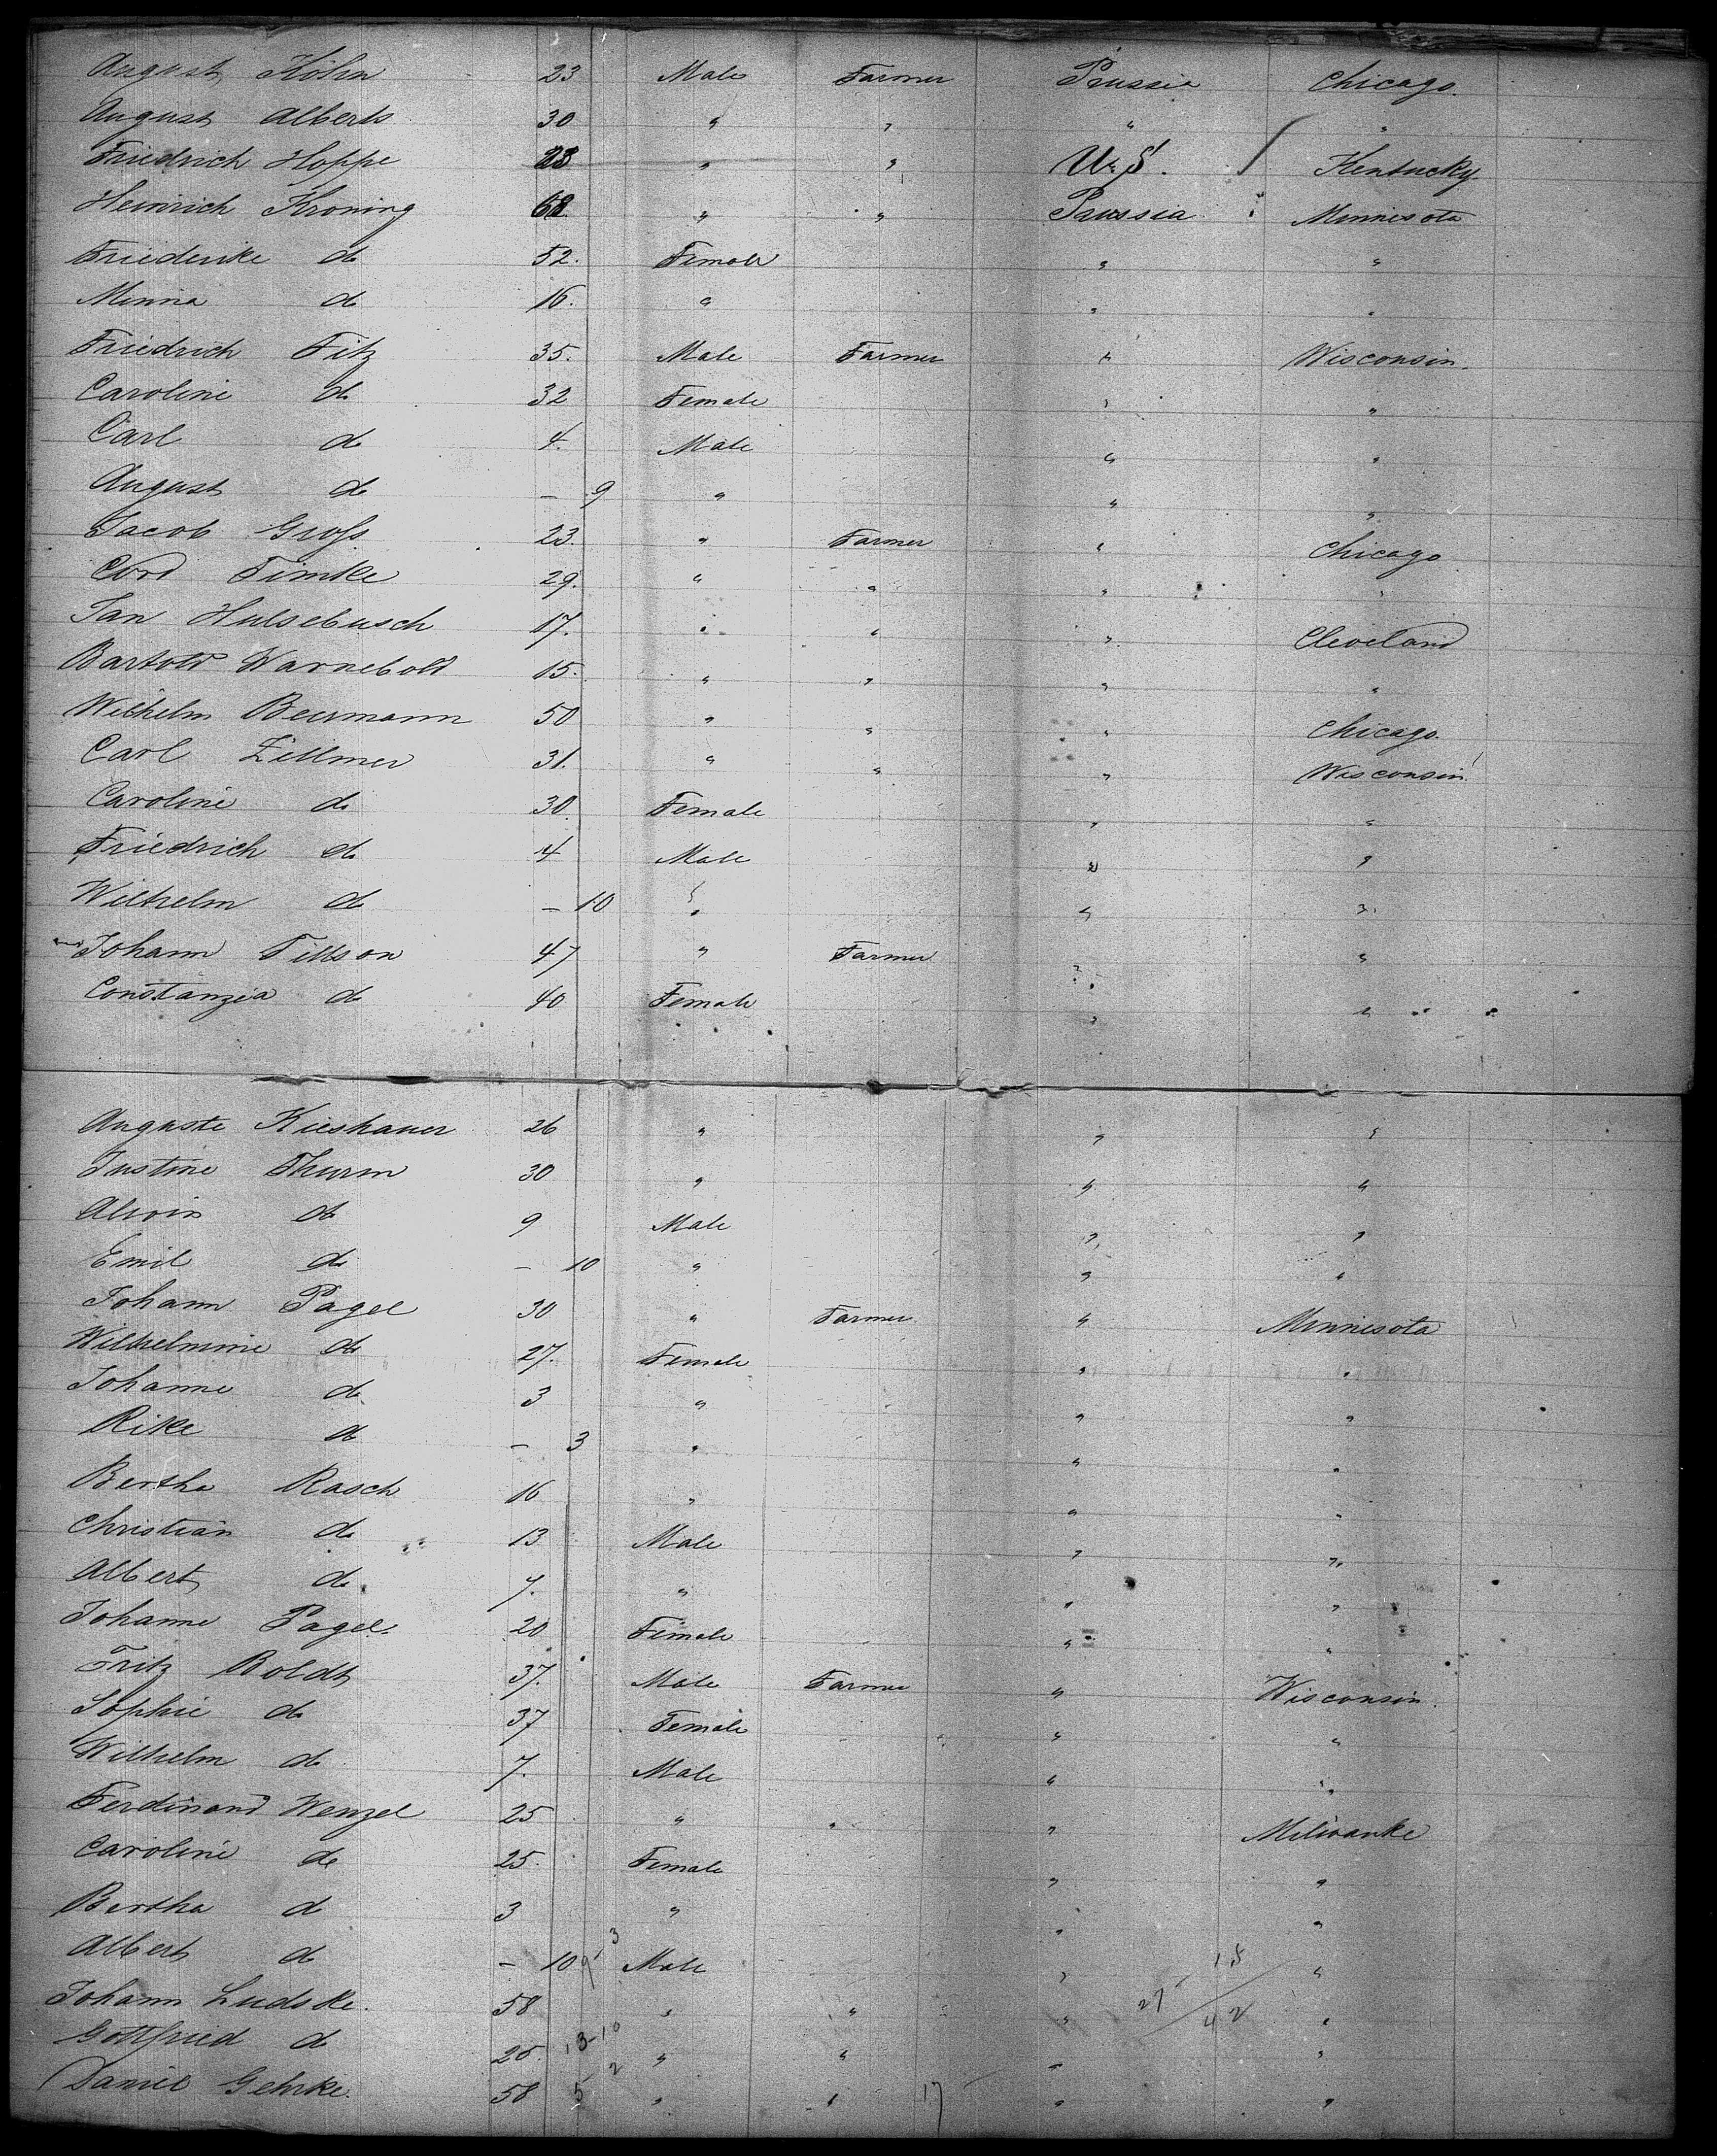 August Köhn 23 Male Farmer Prussia Chicago.
August Alberts 30 " " " "
Friedrich Hoppe 28 " " U. S. Kentucky.
Heinrich Kroning 68 " " Prussia Minnesota
Friederike do 52. Female " "
Minna do 16. " " "
Friedrich Titz 35. Male Farmer " Wisconsin.
Caroline do 32 Female " "
Carl do 4. Male " "
August do – 9 " " "
Jacob Groſs 23. " Farmer " Chicago
Cord Timke 29. " " " "
Jan Hulsebusch 17. " " " Cleveland
Bartold Warnebold 15. " " " "
Wilhelm Beurmann 50 " " " Chicago.
Carl Zillmer 31. " " " Wisconsin.
Caroline do 30. Female " "
Friedrich do 4 Male " "
Wilhelm do – 10 " " "
Johann Tillson 47 " Farmer " "
Constanzia do 40 Female " "
Auguste Kieshauer 26 " " "
Justine Thurm 30 " " "
Alwin do 9 Male " "
Emil do – 10 " " "
Johann Pagel 30 " Farmer " Minnesota
Wilhelmine do 27. Female " "
Johanne do 3 " " "
Rike do – 3 " " "
Bertha Rasch 16 " " "
Christian do 13 Male " "
Albert do 7. " " "
Johanne Pagel. 20 Female " "
Fritz Boldt 37. Male Farmer " Wisconsin.
Sophie do 37 Female " "
Wilhelm do 7. Male " "
Ferdinand Wenzel 25 " " " Milwauke
Caroline do 25. Female " "
Bertha do 3 " " "
Albert do – 10 Male " "
Johann Ludske. 58 " " " "
Gottfried do 26. " " " "
Daniel Gehrke. 58 " " " "